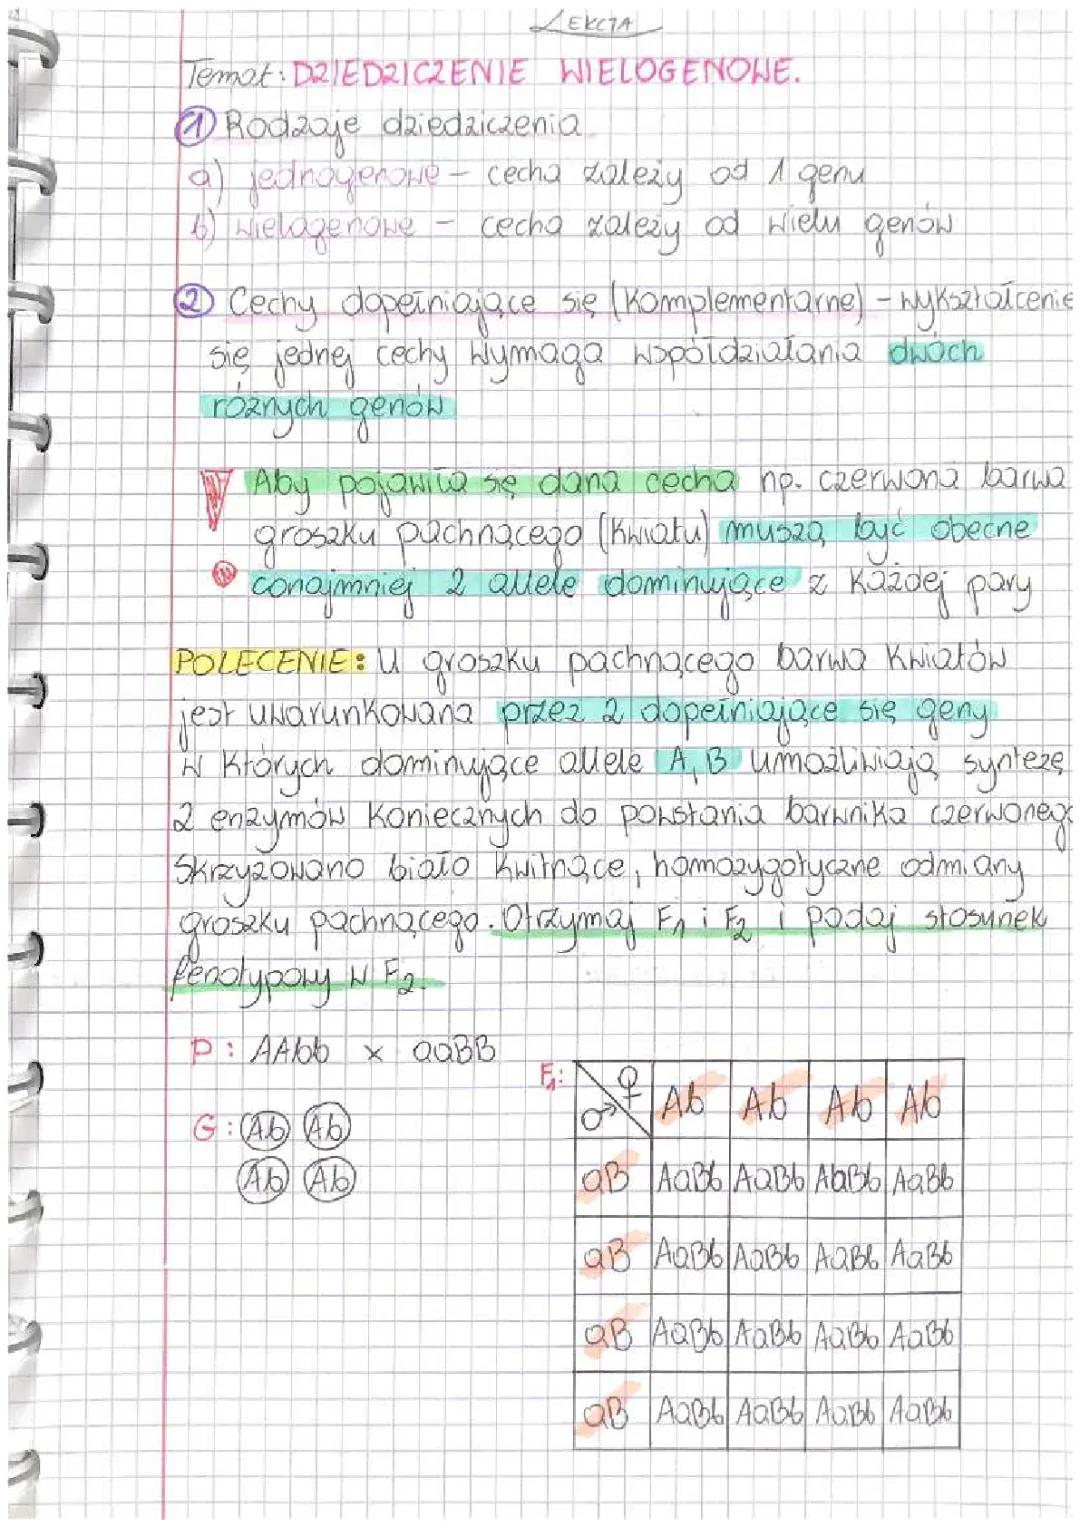 LEKCJA
Temat: DZIEDZICZENIE WIELOGENOWE.
① Rodzaje dziedziczenia
a) jednogenowe - cecha zależy od 1 genu
b) wielogenowe - cecha zależy od wielu genów
② Cechy dopełniające się (komplementarne) - wykształcenie
się jednej cechy wymaga współdziałania dwóch
różnych genów
Aby pojawiła się dana cecha np. czerwona barwa
groszku pachnącego (kwiatu) muszą być obecne
conajmniej 2 allele dominujące z każdej pary
POLECENIE: U groszku pachnącego barwa kwiatów
jest uwarunkowana przez 2 dopełniające się geny
w których dominujące allele A, B umożliwiają syntezę
2 enzymów koniecznych do powstania barwnika czerwonego
Skrzyżowano biało kwitnące, homozygotyczne odmiany
groszku pachnącego. Otrzymaj F1 i F2 i podaj stosunek
fenotypowy w F2.
P: AAbb x aaBB
F1: ♂ ♀ Ab Ab Ab Ab
G: Ab Ab
Ab Ab
aB AaBb AaBb AaBb AaBb
aB AaBb AaBb AaBb AaBb
aB AaBb AaBb AaBb AaBb
aB AaBb AaBb AaBb AaBb